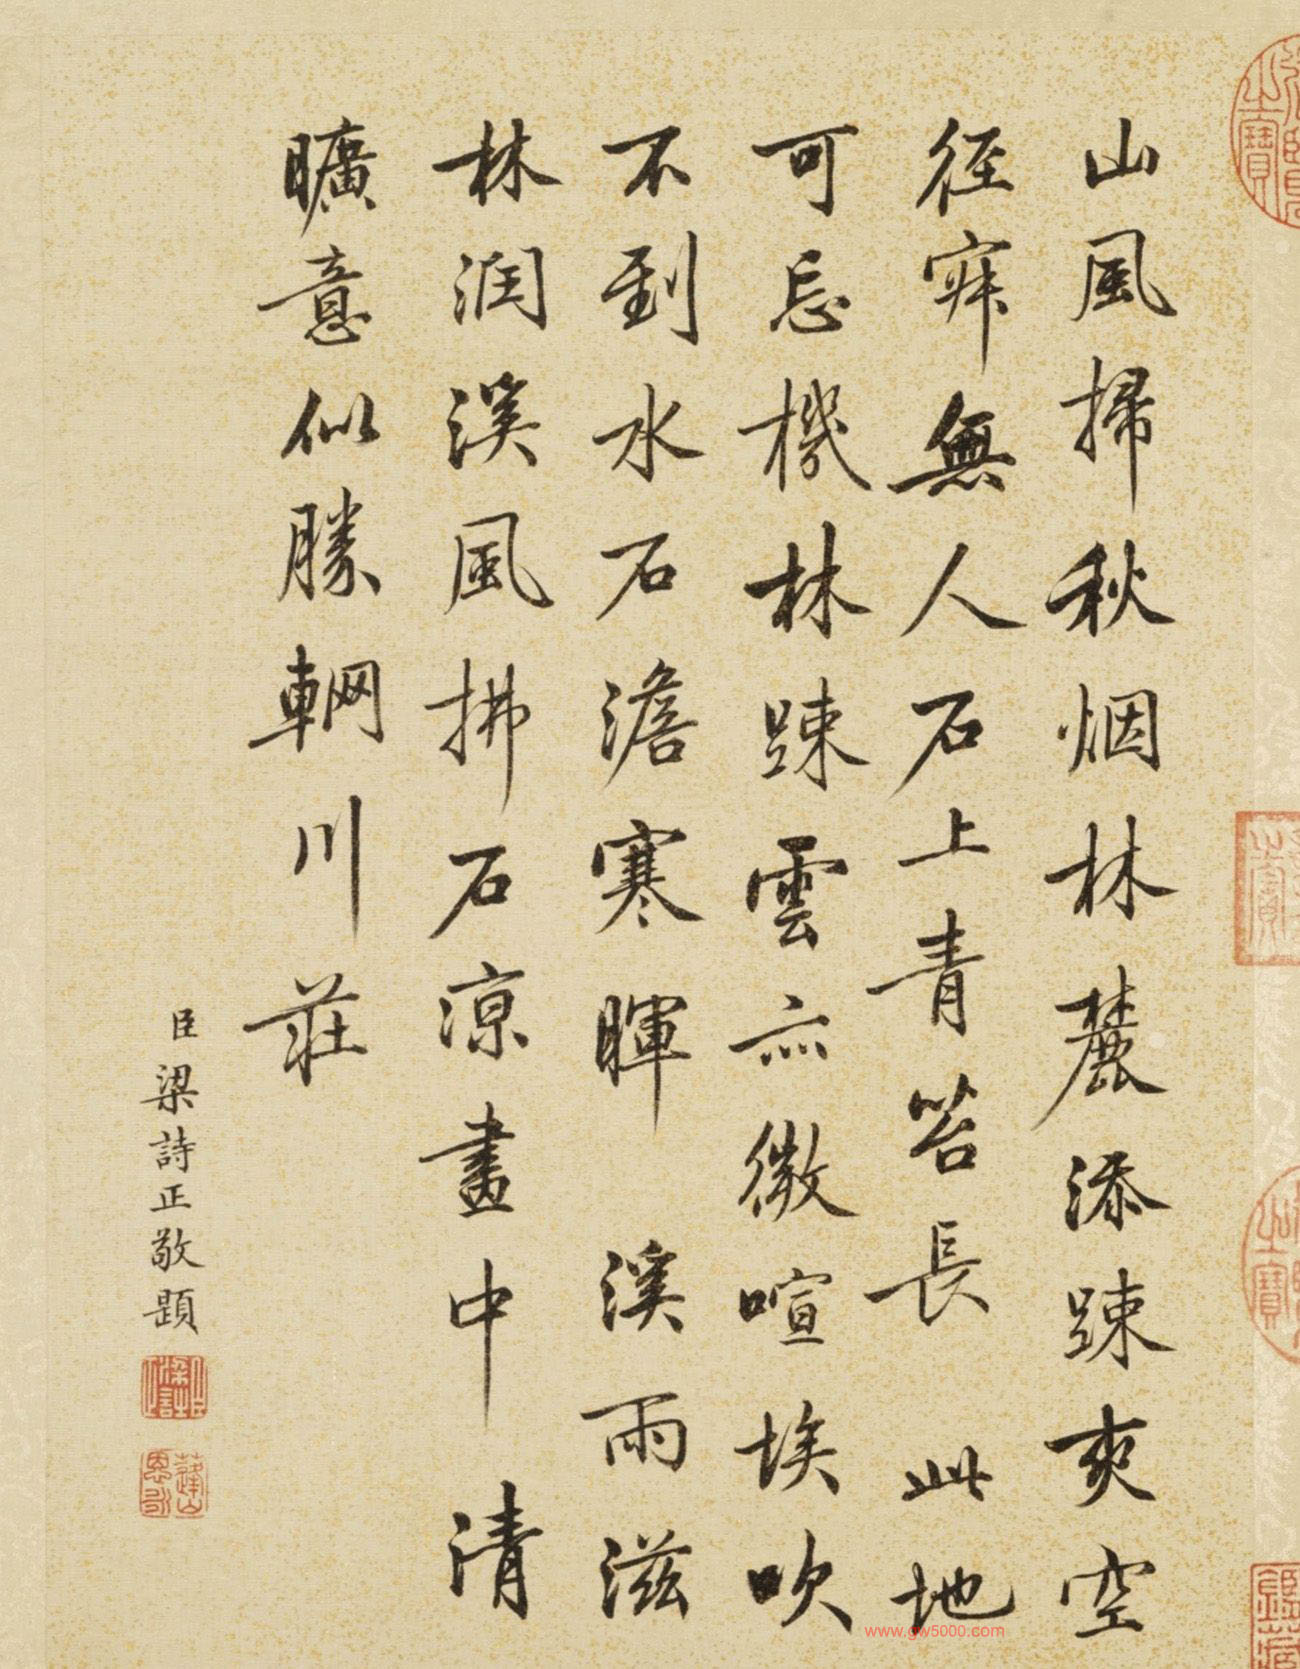 山風掃秋烟林麓添踈爽空
徑寂無人石上青苔長此地
可忘機林踈雲亦微喧埃吹
不到水石澹寒暉溪雨滋
林润溪風拂石凉畫中清
曠意似勝輞川莊
臣梁詩正敬題
www.gw5000.com